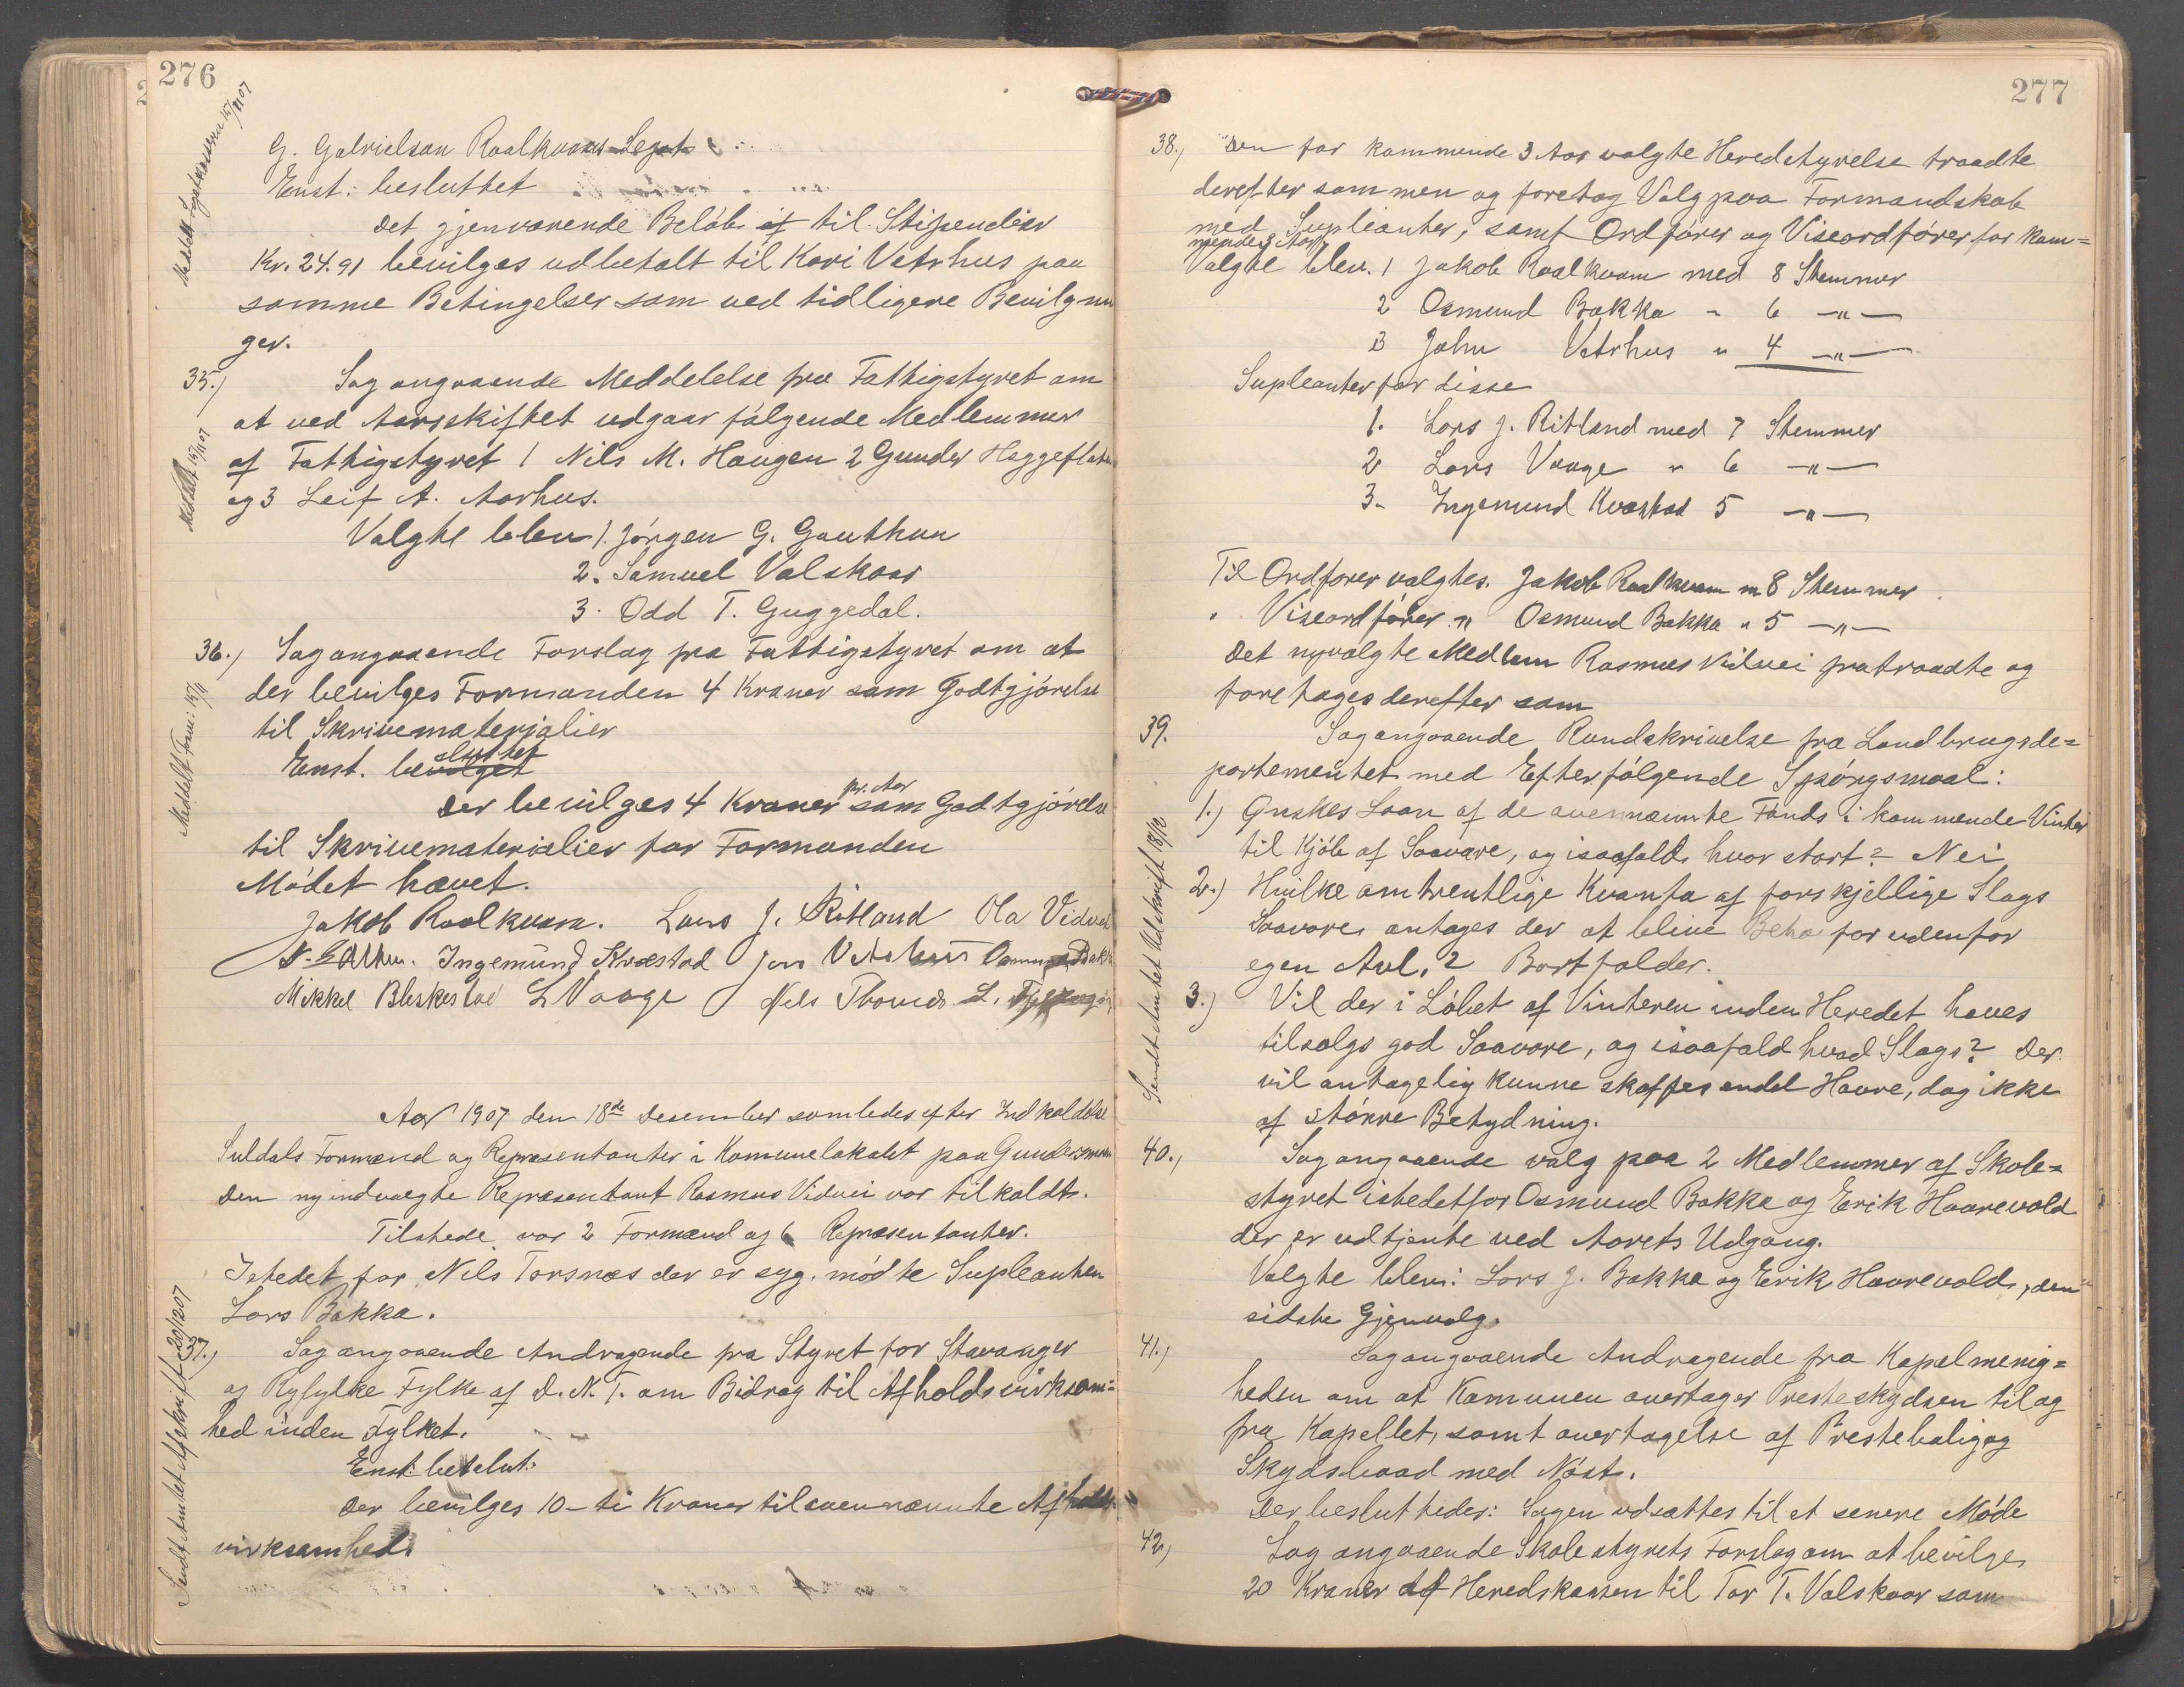 276
G. Gabrielsan Raalkvams Legat
Enst. besluttet
Det gjenværende Beløb af til Stipendier
Kr. 24.91 bevilges udbetalt til Kari Vetrhus paa
samme Betingelser som ved tidligere Bevilgnin
ger.
Meddelt 15/11 07
35.) Sag angaaende Meddelelse fra Fattigstyret om
at ved Aarsskiftet udgaar følgende Medlemmer
af Fattigstyret 1 Nils M. Haugen 2 Gunder Heggeflaten
og 3 Leif A. Aarhus.
Valgte blev 1. Jørgen G. Gauthun
2. Samuel Valskaar
3. Odd T. Guggedal.
Meddelt Form: 15/11
36.) Sag angaaende Forslag fra Fattigstyret om at
der bevilges Formanden 4 Kroner som Godtgjørelse
til Skrivematerialier
Enst. besluttet
Der bevilges 4 Kroner pr. Aar som Godtgjørelse
til Skrivematerialier for Formanden
Mødet hævet.
Jakob Raalkvam. Lars J. Ritland Ola Vidvei
Ingemund Kvæstad Jon Vetrhus Osmund Bakka
Mikkel Bleskestad L Vaage Nils Thorsnes L.
Aar 1907 den 18de Desember samledes efter Indkaldelse
Suldals Formænd og Repræsentanter i Kommunelokalet paa Gundersmoen
Den nyindvalgte Repræsentant Rasmus Vidvei var tilkaldt.
Tilstede var 2 Formænd og 6 Repræsentanter.
Istedet for Nils Torsnæs der er syg. mødte Supleanten
Lars Bakka.
Sendt Amtet Afskrift 20/12 07
37.) Sag angaaende Andragende fra Styret for Stavanger
og Ryfylke Fylke af D. N. T. om Bidrag til Afholdsvirksom=
hed inden Fylket.
Enst. beslut:
Der bevilges 10 - ti Kroner til ovennævnte Afholds
virksamhed.
277
38.) Den for kommende 3 Aar valgte Heredstyrelse traadte
derefter sammen og foretog Valg paa Formandskab
med Supleanter, samt Ordfører og Viseordfører for kom=
mende Aar
Valgte blev. 1 Jakob Raalkvam med 8 Stemmer
2 Osmund Bakka " 6 -"-
3 John Vetrhus " 4 -"-
Supleanter for disse
1. Lars J. Ritland med 7 Stemmer
2 Lars Vaage " 6 -"-
3. Ingemund Kvæstad 5 -"-
Til Ordfører valgtes. Jakob Raalkvam m 8 Stemmer
" Viseordfører " Osmund Bakka " 5 -"-
Det nyvalgte Medlem Rasmus Vidvei fratraadte og
foretages derefter som
39. Sag angaaende Rundskrivelse fra Landbrugsde=
partementet med Efterfølgende Spørgsmaal:
Sendt Amtet Udskrift 18/12
1.) Ønskes Laan af de ovennævnte Fonds i kommende Vinter
til Kjøb af Saavare, og isaafald hvor stort? - Nei
2.) Hvilke omtrentlige Kvanta af forskjellige Slags
Saavare antages der at blive Behov for udenfor
egen Avl.? Bortfalder.
3.) Vil der i Løbet af Vinteren inden Heredet haves
tilsalgs god Saavare, og isaafald hvad Slags? Der
vil antagelig kunne skaffes endel Havre, dog ikke
af større Betydning.
40.) Sag angaaende valg paa 2 Medlemmer af Skole=
styret istedetfor Osmund Bakka og Erik Haarevold
der er udtjente ved Aarets Udgang.
Valgte blev: Lars J. Bakka og Erik Haarevold, den
sidste Gjenvalg.
41.) Sag angaaende Andragende fra Kapelmenig=
heden om at Kommunen overtager Presteskydsen til og
fra Kapellet, samt overtagelse af Prestebolig og
Skydsbaad med Nøst.
Der besluttedes: Sagen udsættes til et senere Møde
42.) Sag angaaende Skolestyrets Forslag om at bevilge
20 Kroner af Heredskassen til Tor T. Valskaar som